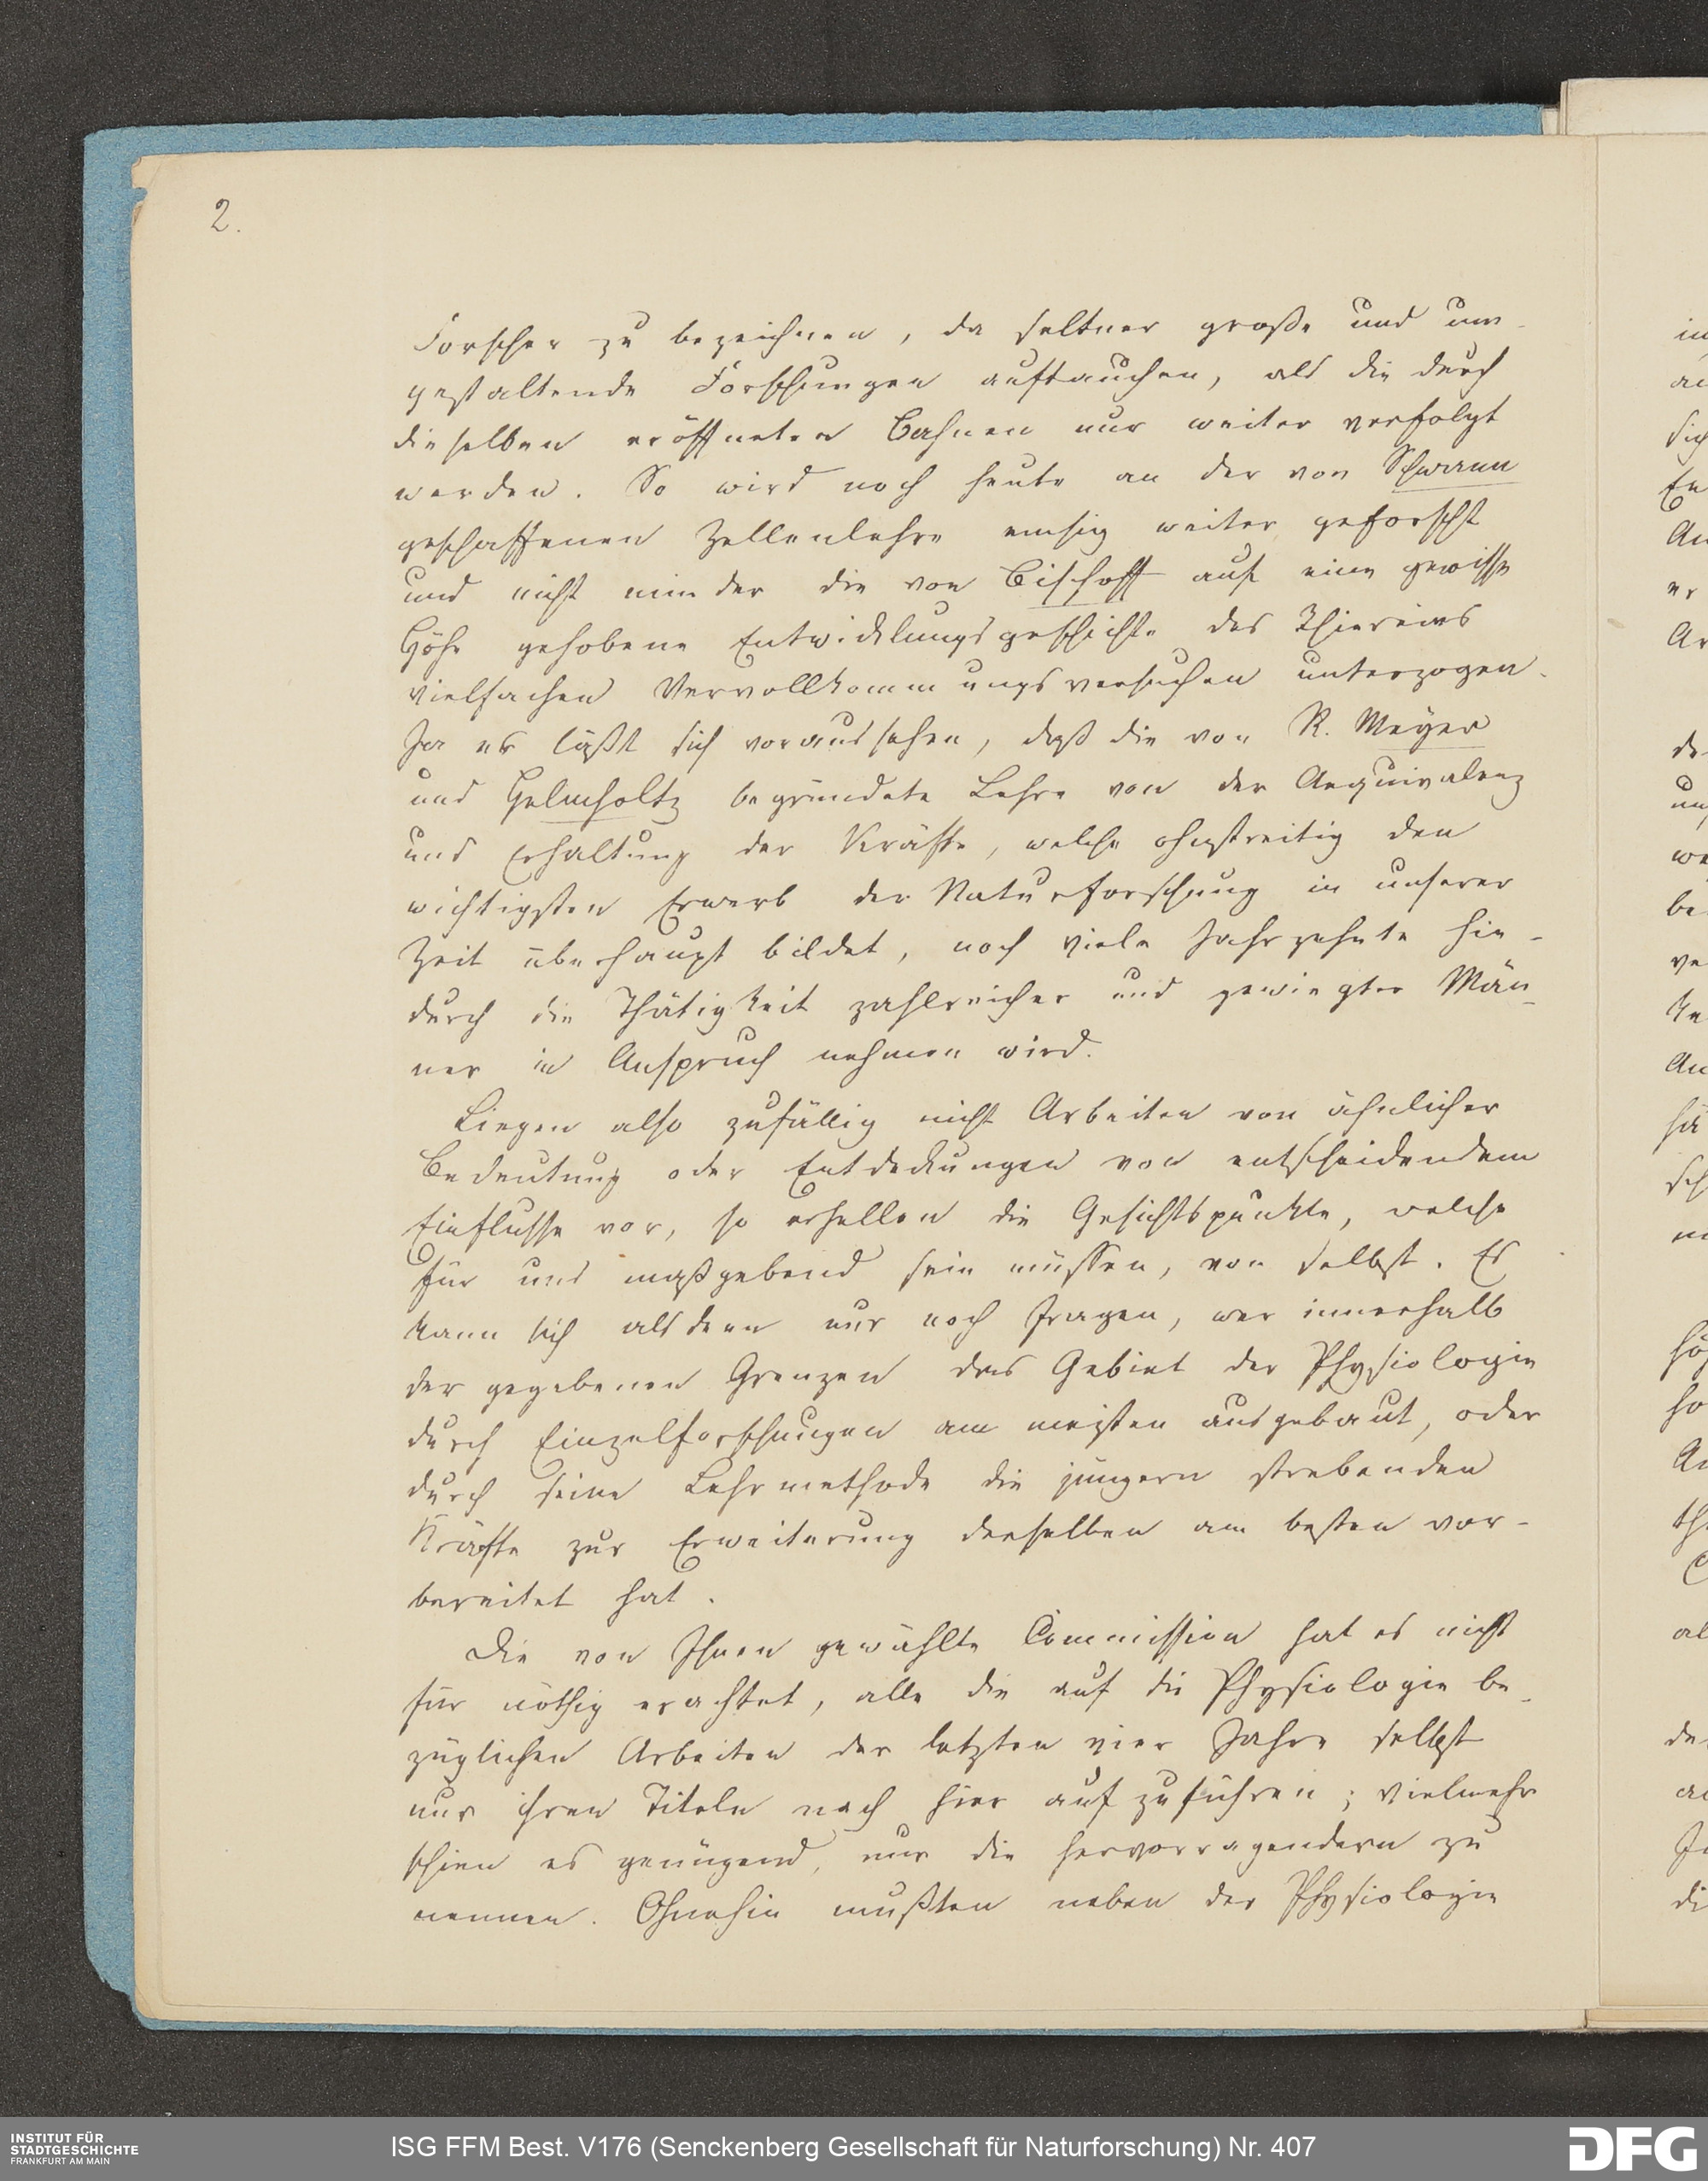 2.
Forscher zu bezeichnen, da seltner große und um-
gestaltende Forschungen auftauchen, als die durch
dieselben eröffneten Bahnen nur weiter verfolgt
werden. So wird noch heute an der von Schwann
geschaffenen Zellenlehre emsig weiter geforscht
und nicht minder die von Bischoff auf eine gewisse
Höhe gehobene Entwicklungsgeschichte des Thiereies
vielfachen Vervollkommnungsversuchen unterzogen.
Ja es läßt sich voraussehen, daß die von R. Meyer
und Helmholtz begründete Lehre von der Aequivalenz
und Erhaltung der Kräfte, welche ohnstreitig den
wichtigsten Erwerb der Naturforschung in unserer
Zeit überhaupt bildet, noch viele Jahrzehnte hin-
durch die Thätigkeit zahlreicher und gewiegter Män-
ner in Anspruch nehmen wird.
Liegen also zufällig nicht Arbeiten von ähnlicher
Bedeutung oder Entdeckungen von entscheidendem
Einflusse vor, so erhellen die Gesichtspunkte, welche
für uns maßgebend sein müssen, von selbst. Es
kann sich alsdann nur noch fragen, wer innerhalb
der gegebenen Grenzen das Gebiet der Physiologie
durch Einzelforschungen am meisten ausgebaut, oder
durch seine Lehrmethode die jüngern strebenden
Kräfte zur Erweiterung derselben am besten vor-
bereitet hat.
Die von Ihnen gewählte Commission hat es nicht
für nöthig erachtet, alle die auf die Physiologie be-
züglichen Arbeiten der letzten vier Jahre selbst
nur ihren Titeln nach hier aufzuführen; vielmehr
schien es genügend, nur die hervorragendern zu
nennen. Ohnehin mußten neben der Physiologie
INSTITUT FÜR
STADTGESCHICHTE
FRANKFURT AM MAIN
ISG FFM Best. V176 (Senckenberg Gesellschaft für Naturforschung) Nr. 407
DFG